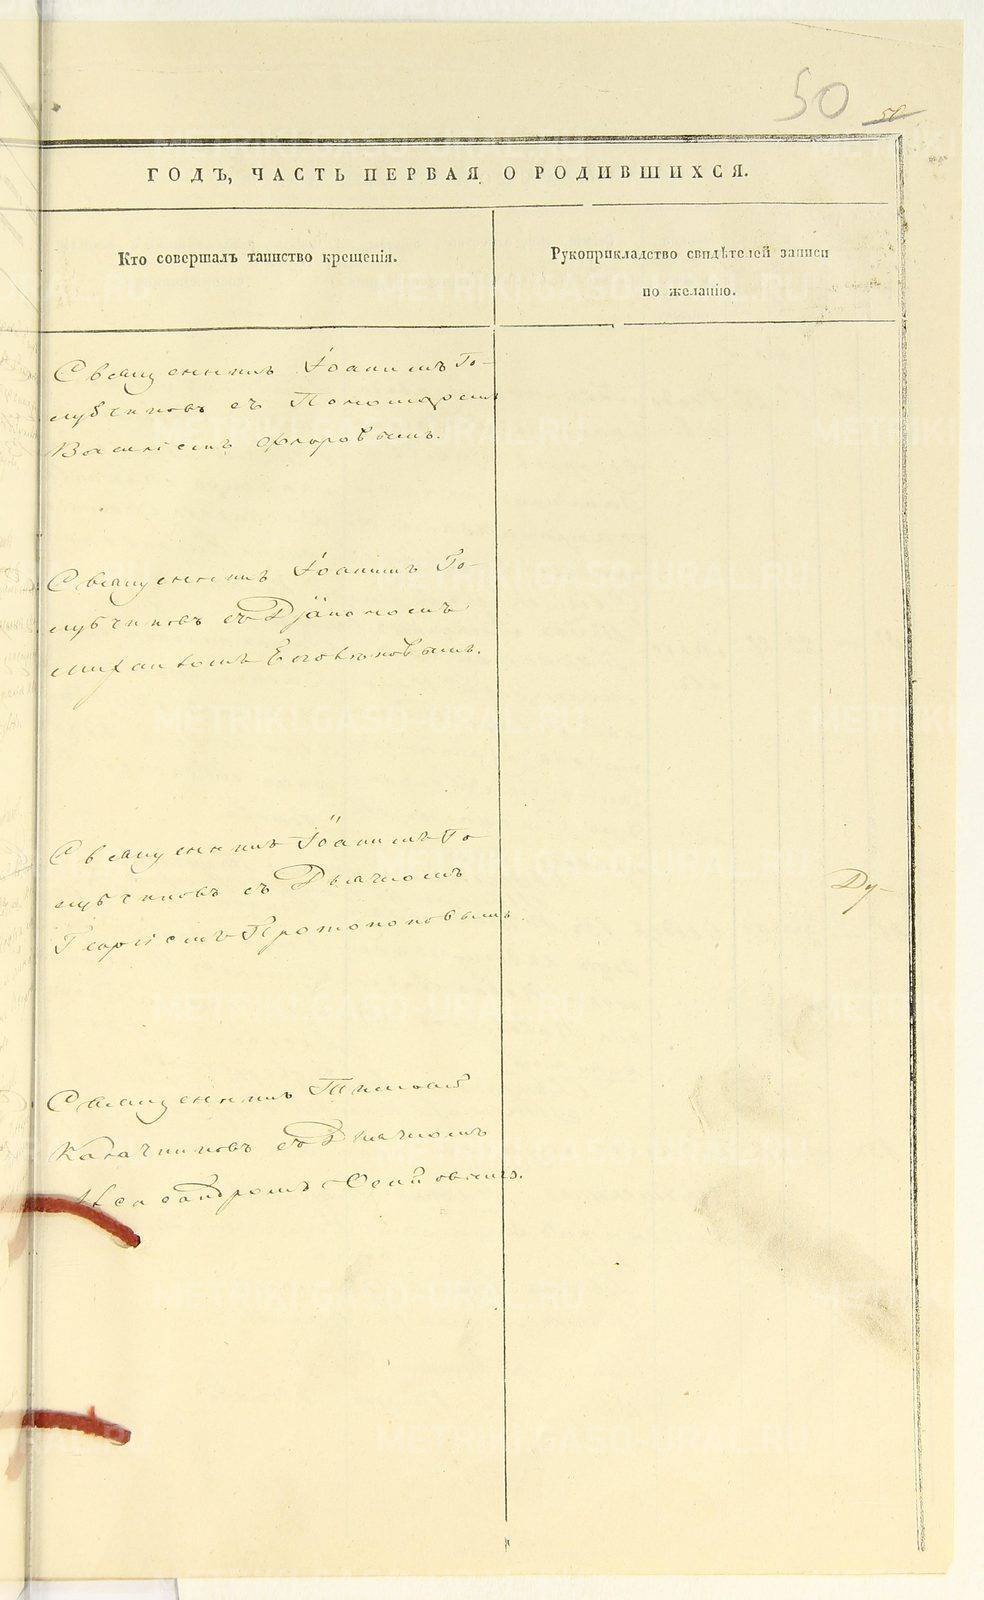 50
ГОДЪ, ЧАСТЬ ПЕРВАЯ О РОДИВШИХСЯ.
Кто совершалъ таинство крещенія.
Рукоприкладство свидѣтелей записи
по желанію.
Священникъ Іоаннъ Го-
лубчиковъ съ Пономаремъ
Василіемъ Флоровымъ.
Священникъ Іоаннъ Го-
лубчиковъ съ Діакономъ
Михаиломъ
Священникъ Іоаннъ Го-
лубчиковъ съ Дьячкомъ
Георгіемъ Протопоповымъ.
Ду-
Священникъ Тимофей
Калачниковъ съ Дьячкомъ
METRIKI.GASO-URAL.RU